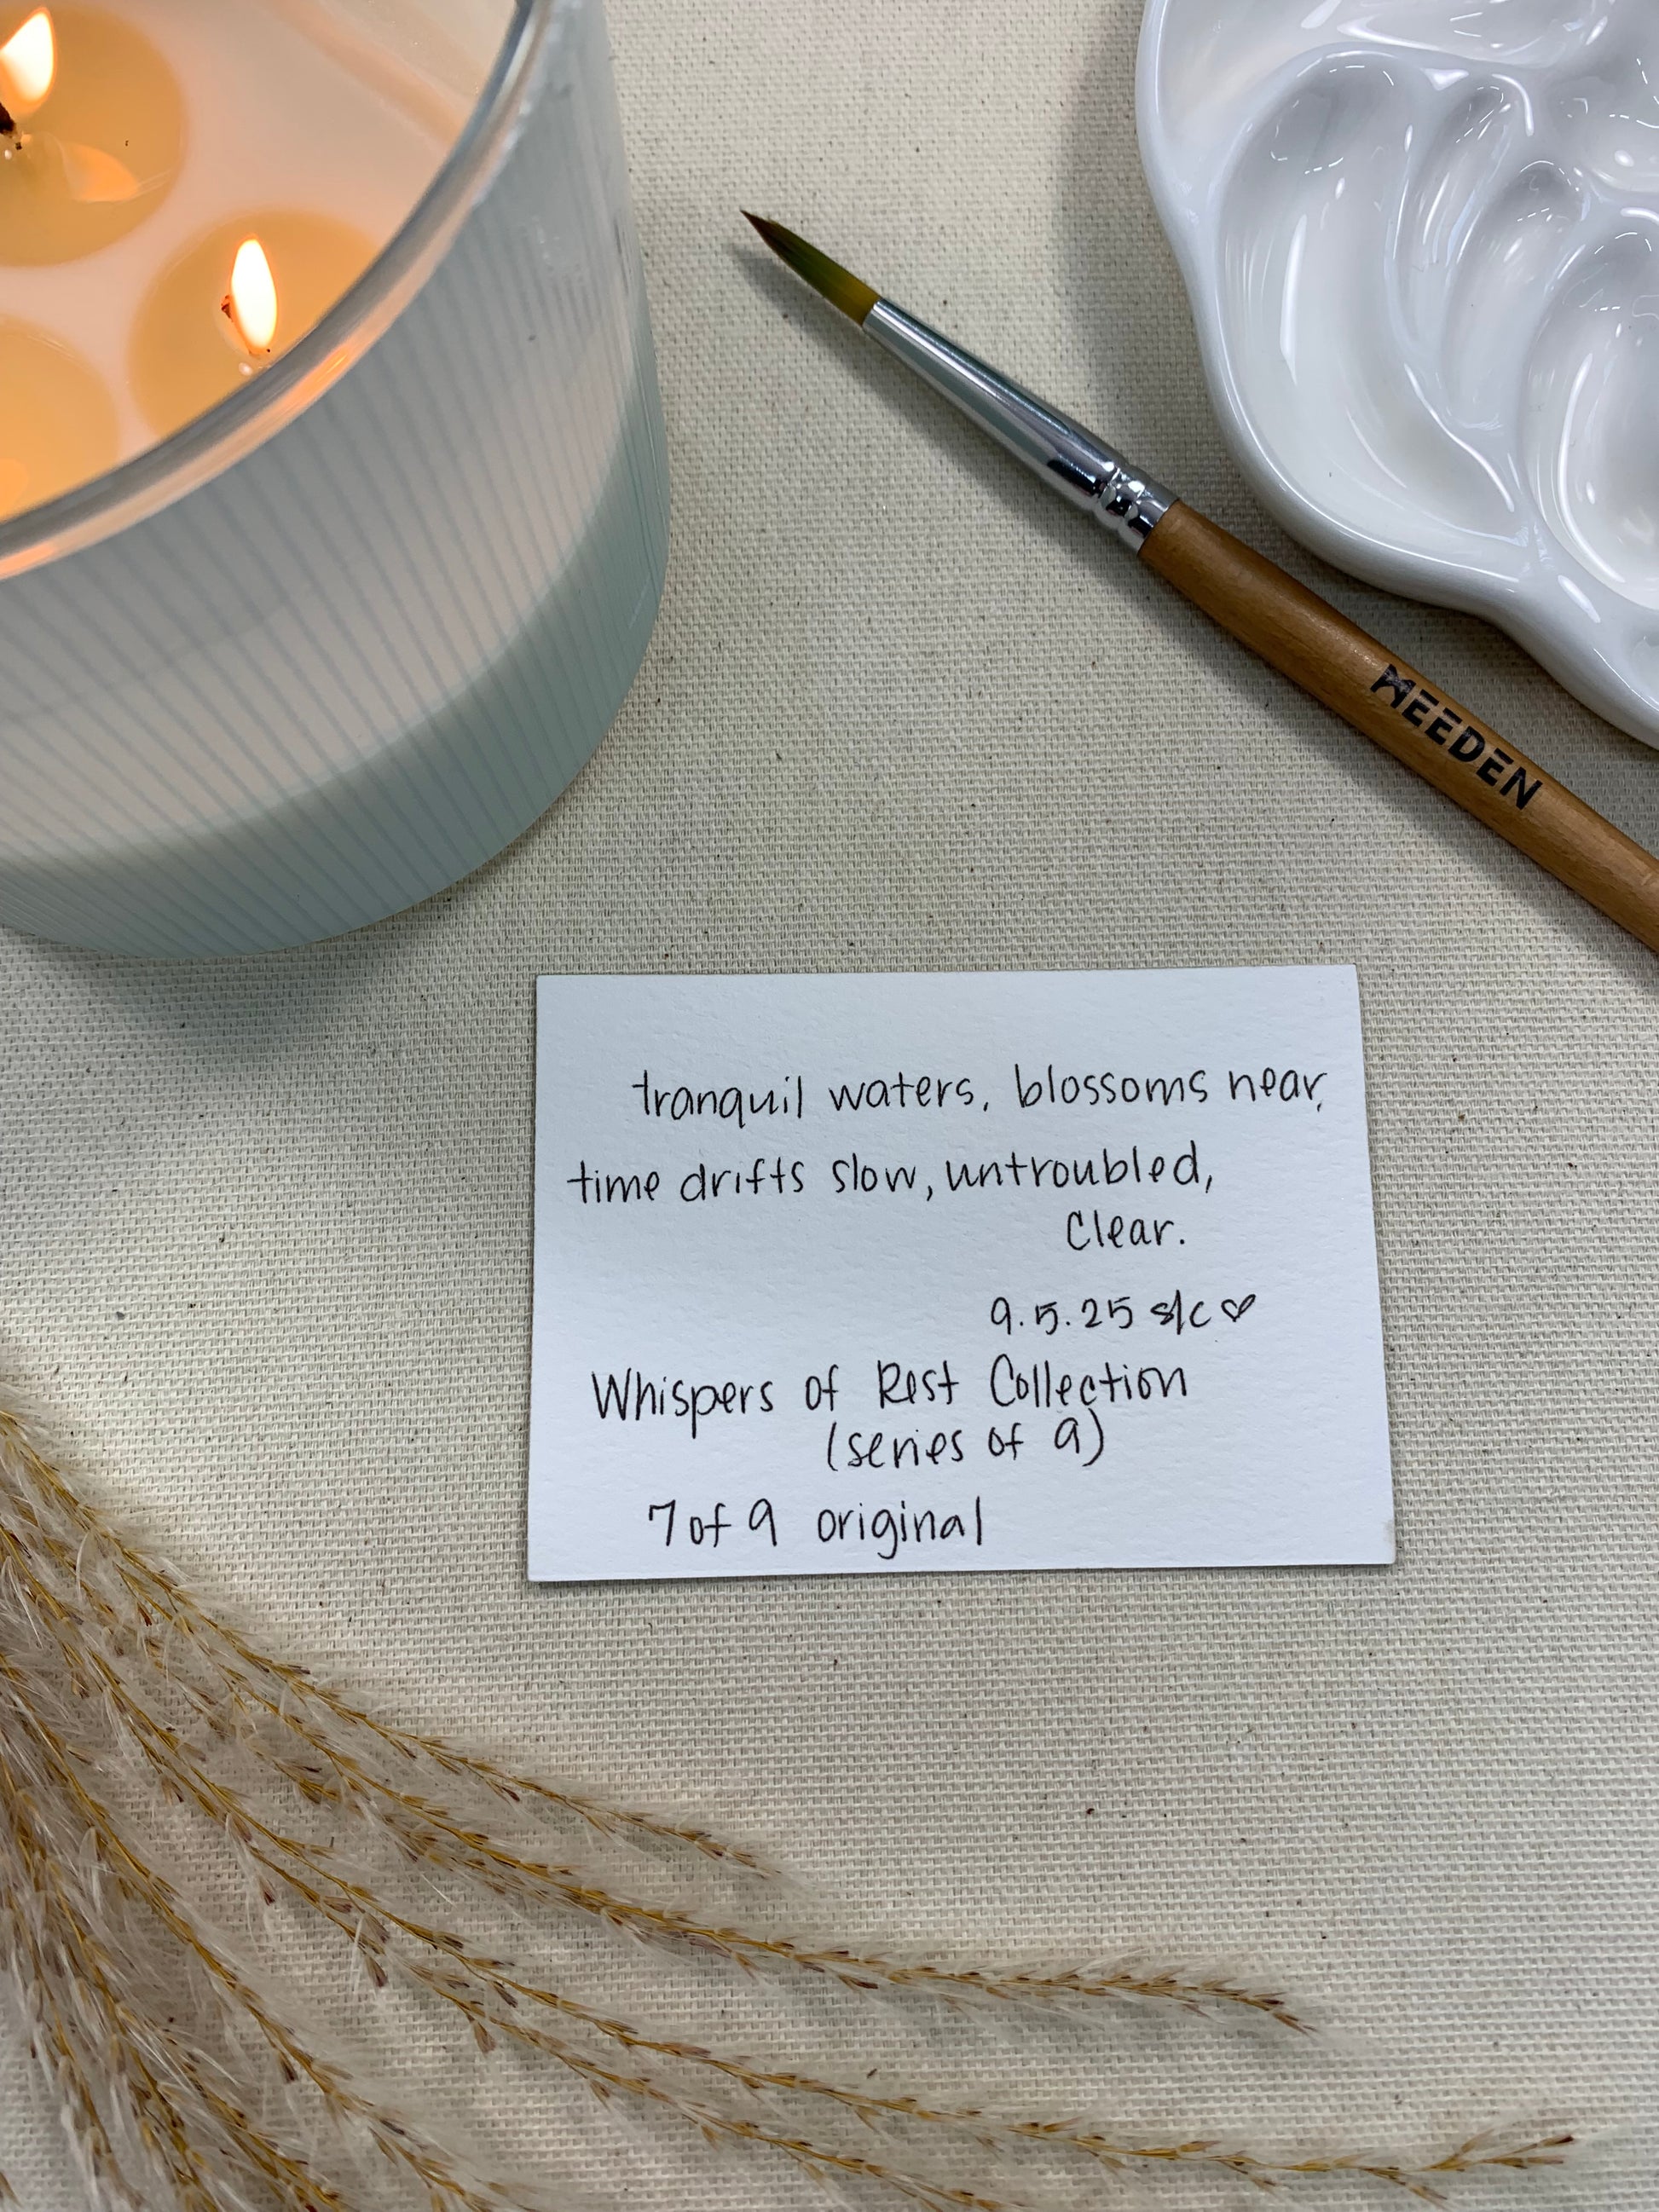 MEEDEN
tranquil waters, blossoms near,
time drifts slow, untroubled,
clear.
9.5.25 s/c ♡
Whispers of Rest Collection
(series of 9)
7 of 9 original